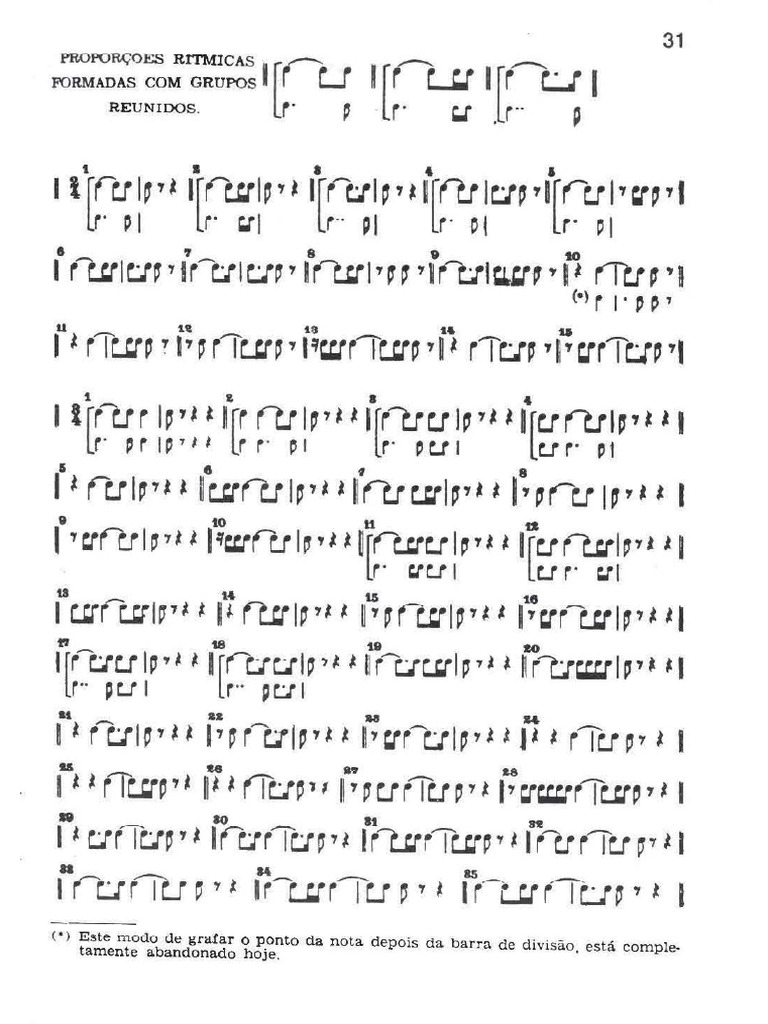 31
PROPORÇOES RITMICAS
FORMADAS COM GRUPOS
REUNIDOS.
2/4 1 2 3 4 5
6 7 8 9 10
(*)
11 12 13 14 15
3/4 1 2 3 4
5 6 7 8
9 10 11 12
13 14 15 16
17 18 19 20
21 22 23 24
25 26 27 28
29 30 31 32
33 34 35
(*) Este modo de grafar o ponto da nota depois da barra de divisão, está comple-
tamente abandonado hoje.